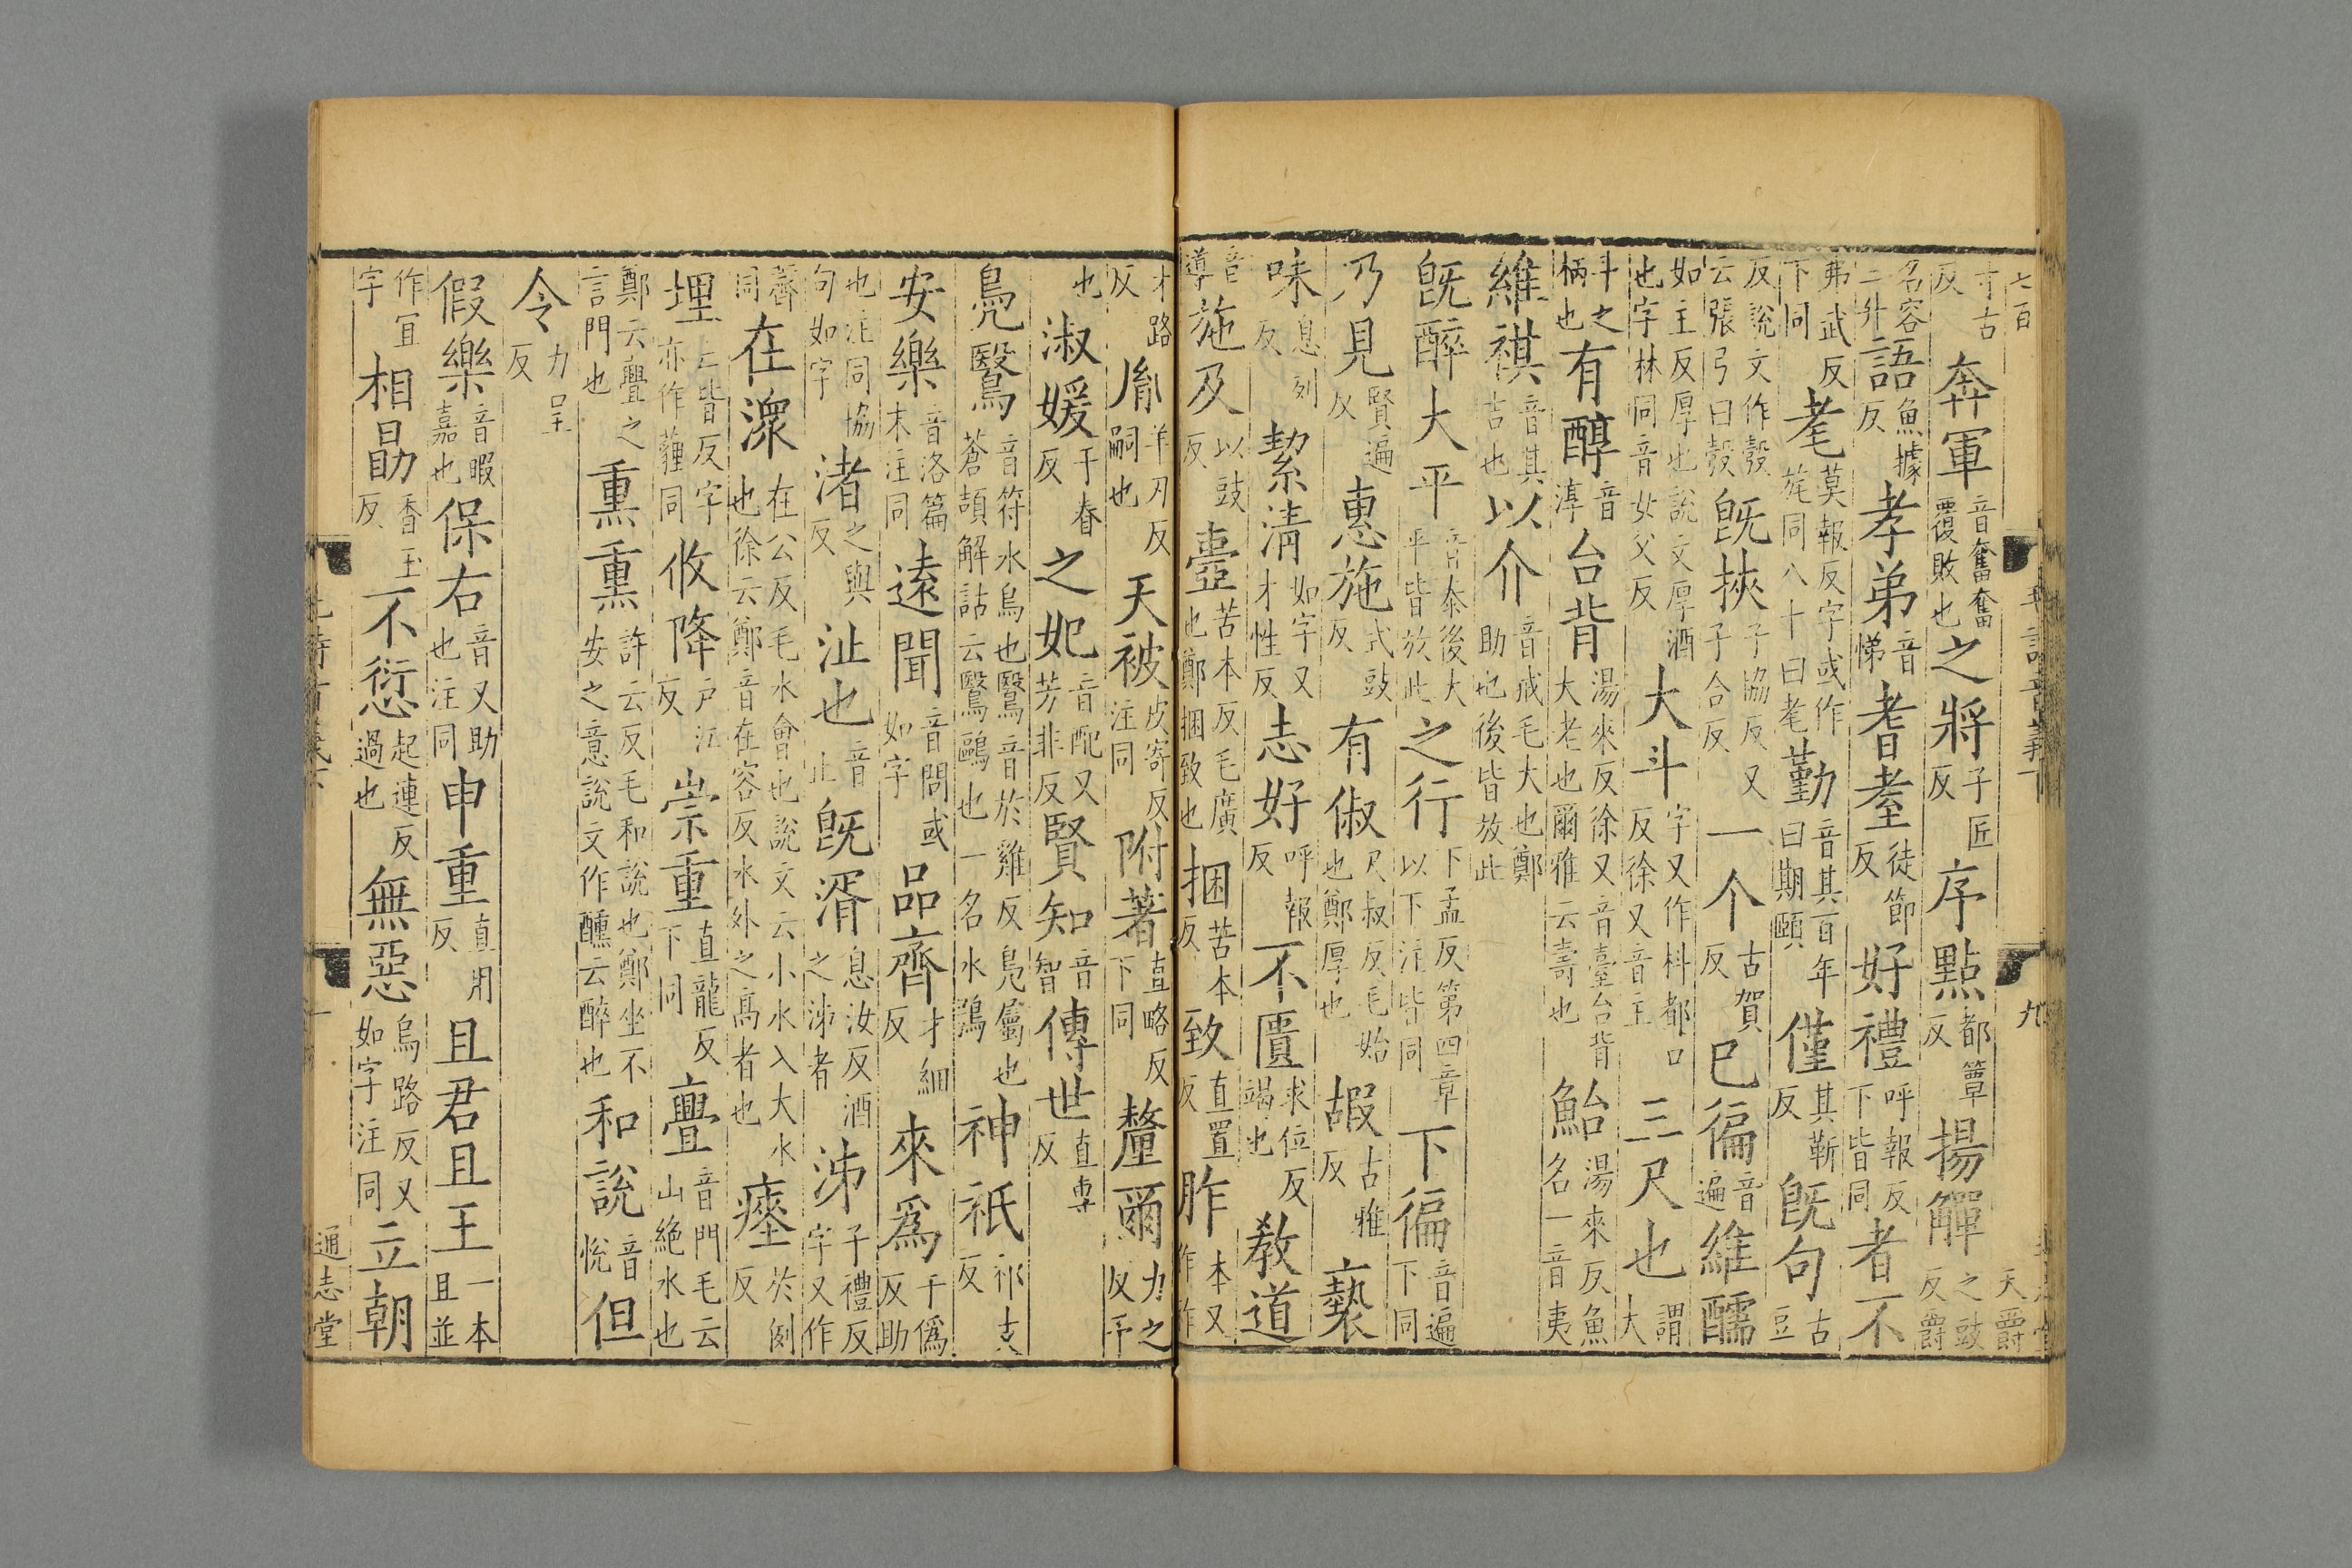 七百 毛詩音義下 九 天爵
寸古反 奔軍 音奮奮覆敗也 之將 子匠反 序點 都簟反 揚觶 之豉反爵
名容二升 語 魚據反 孝弟 音悌 耆耋 徒節反 好禮 呼報反下皆同 者不
弗武反下同 耄 莫報反字或作旄同八十曰耄 勤 音其百年曰期頤 僅 其靳反 旣句 古豆
反說文作彀云張弓曰彀 旣挾 子協反又子合反 一个 古賀反 已徧 音遍 維醹
如主反厚也說文厚酒也字林同音女父反 大斗 字又作枓都口反徐又音主 三尺也 謂大
斗之柄也 有醇 音淳 台背 湯來反徐又音臺台背大老也爾雅云壽也 鮐 湯來反魚名一音夷
維祺 音其吉也 以介 音戒毛大也鄭助也後皆放此
旣醉大平 音泰後大平皆放此 之行 下孟反第四章以下注皆同 下徧 音遍下同
乃見 賢遍反 惠施 式豉反 有俶 尺叔反毛始也鄭厚也 嘏 古雅反 褻
味 息列反 絜清 如字又才性反 志好 呼報反 不匱 求位反竭也 教道
音導 施及 以豉反 壼 苦本反毛廣也鄭捆致也 捆 苦本反 致 直置反 胙 本又作祚
才路反 胤 羊刃反嗣也 天被 皮寄反注同 附著 直略反下同 釐爾 力之反予
也 淑媛 于眷反 之妃 音配又芳非反 賢知 音智 傳世 直専反
鳧鷖 音符水鳥也鷖音於雞反鳧屬也蒼頡解詁云鷖鷗也一名水鴞 神祇 祁支反
安樂 音洛篇末注同 遠聞 音問或如字 品齊 才細反 來爲 于僞反助
也注同協句如字 渚 之與反 沚也 音止 旣湑 息汝反酒之泲者 泲 子禮反字又作
䶒同 在潀 在公反毛水會也說文云小水入大水也徐云鄭音在容反水外之高者也 瘞 於例反
埋 亡皆反字亦作薶同 攸降 戶江反 崇重 直龍反下同 亹 音門毛云山絶水也
鄭云亹之言門也 熏熏 許云反毛和說也鄭坐不安之意說文作醺云醉也 和說 音悅 但
令 力呈反
假樂 音暇嘉也 保右 音又助也注同 申重 直用反 且君且王 一本且並
作宜字 相勗 香玉反 不愆 起連反過也 無惡 烏路反又如字注同 立朝
通志堂